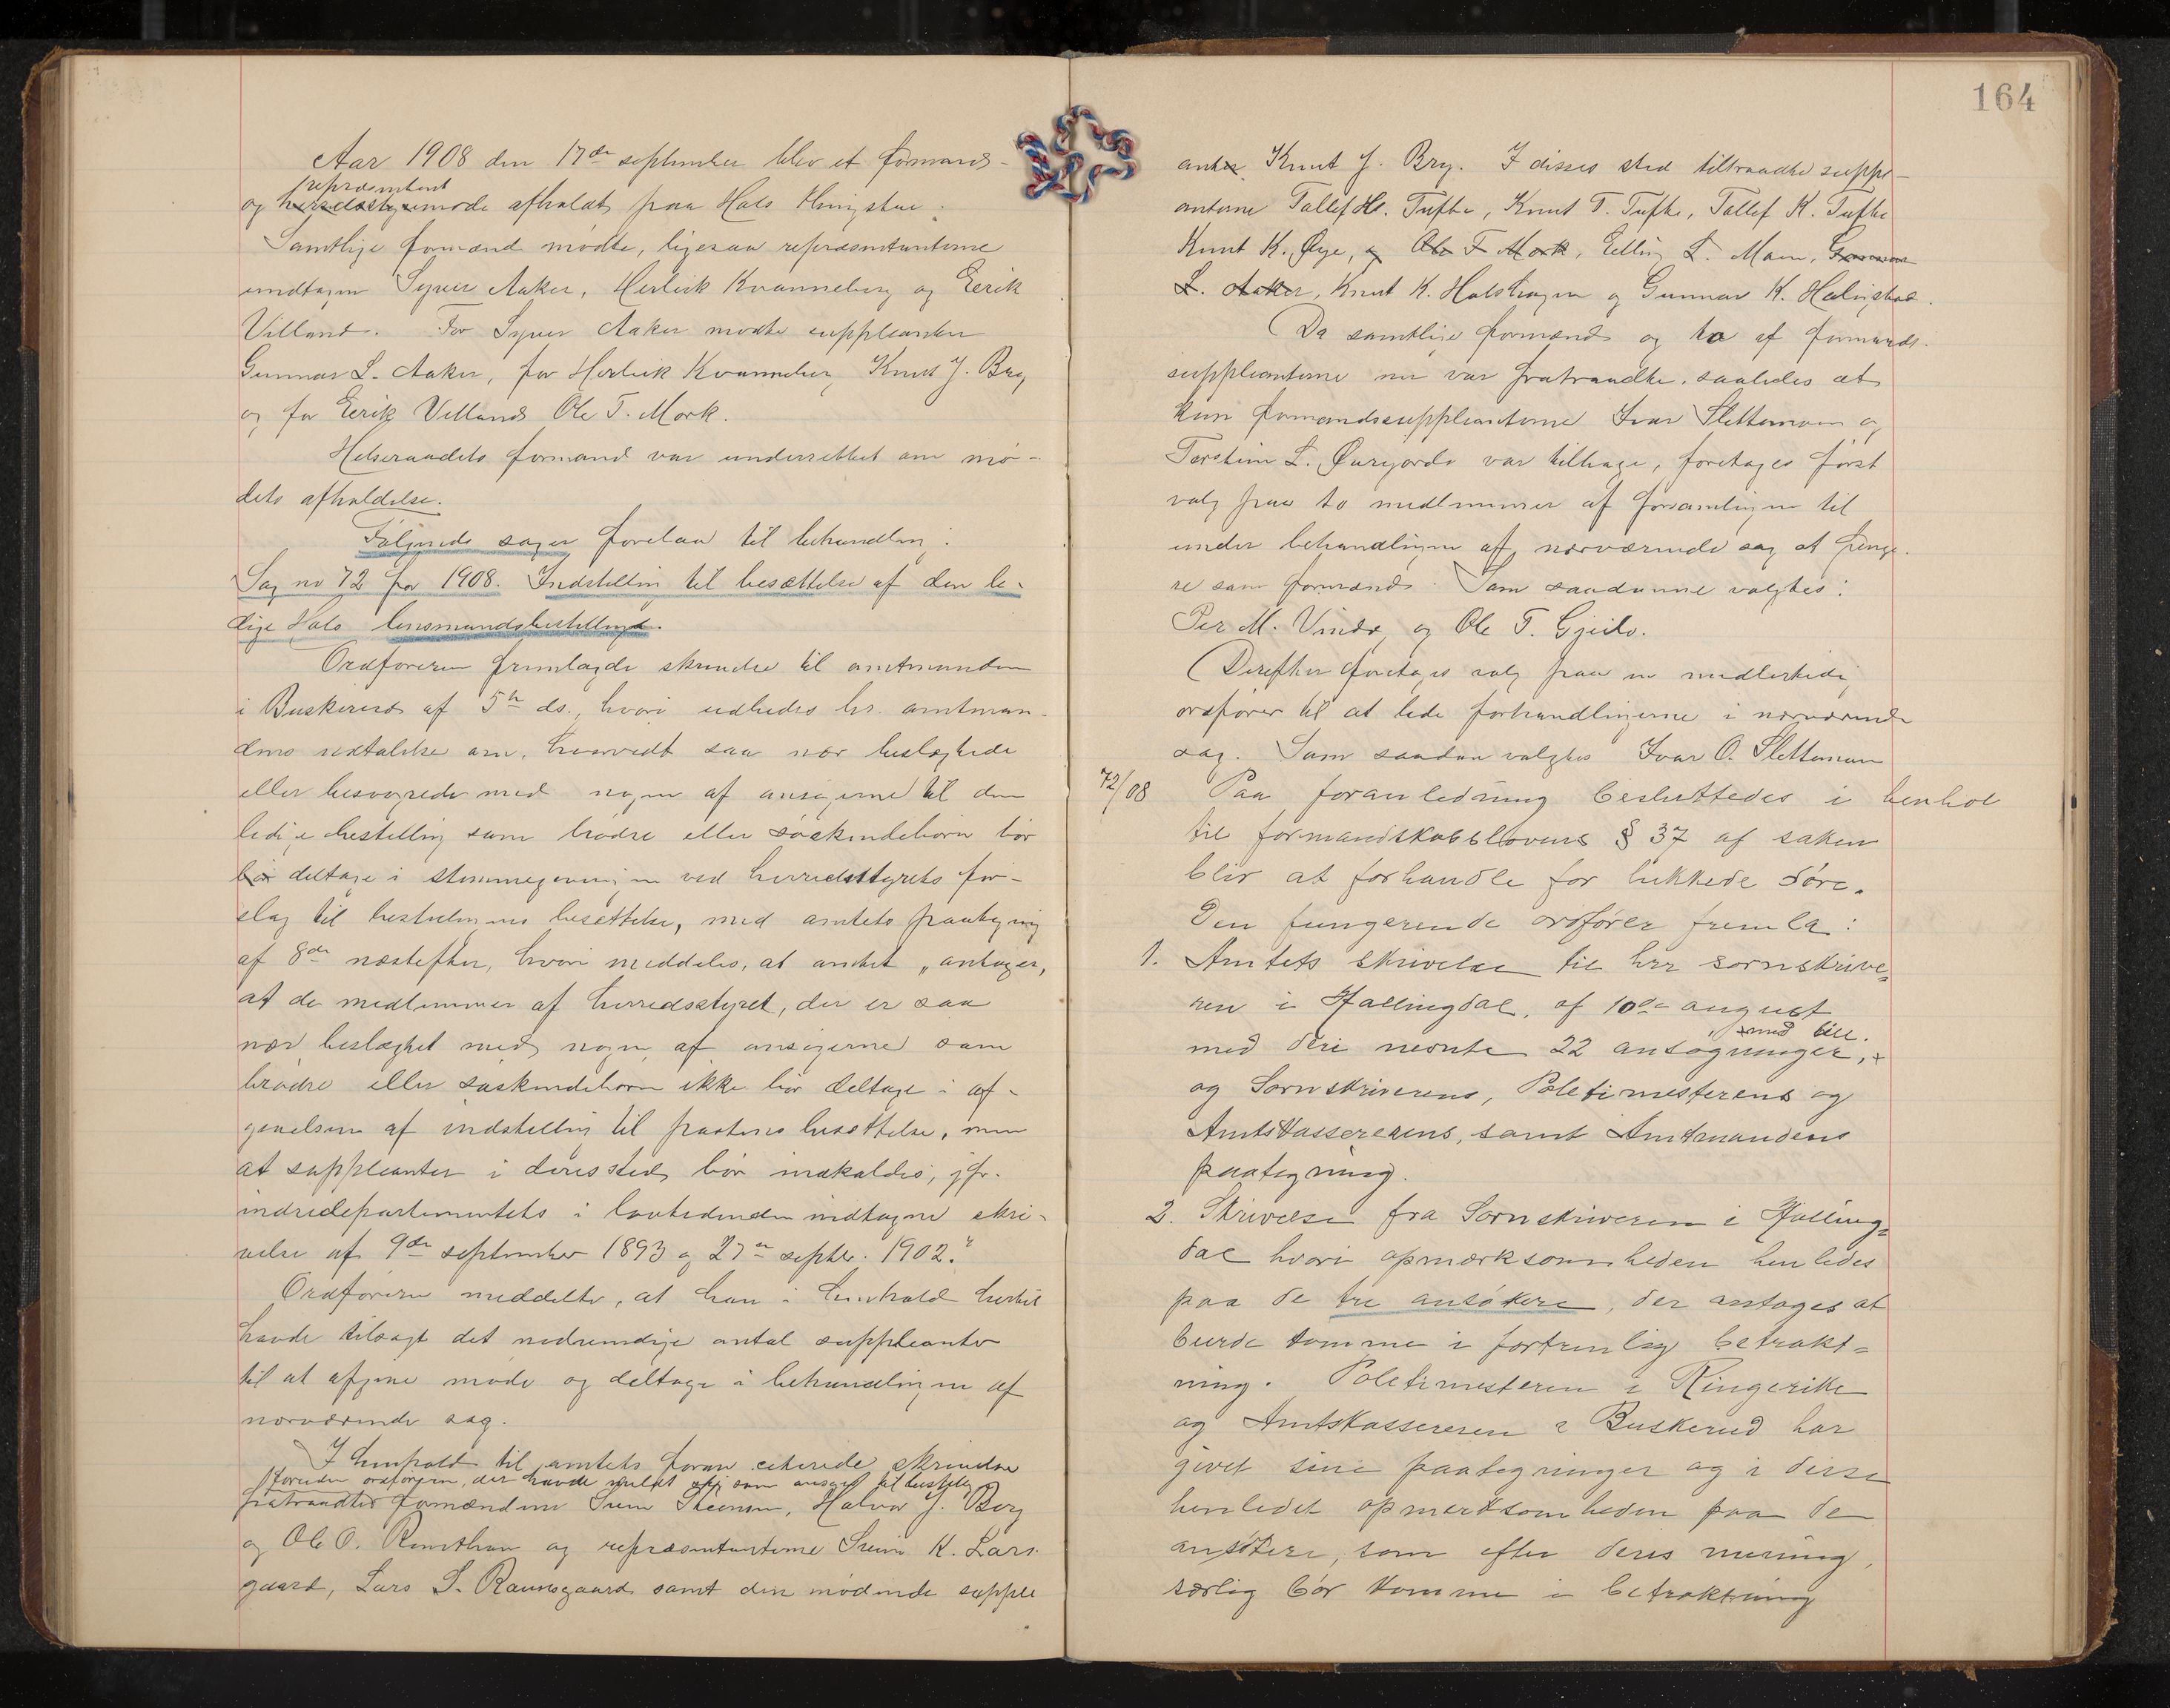 Aar 1908 den 17de september blev et formands-
og repræsentant herredsstyremøde afholdt paa Hols Thingstue.
Samtlige formænd mødte, ligesaa repræsentanterne
undtagen Syver Aaker, Herleik Kvanneberg og Eerik
Villand. For Syver Aaker mødte suppleanten
Gunnar L. Aaker, for Herleik Kvanneberg Knut J. Bry
og for Eerik Villand Ole T. Mork.
Helseraadets formand var underrettet om mø-
dets afholdelse.
Følgende sager forelaa til behandling:
Sag no 72 for 1908. Indstilling til besættelse af den le-
dige Hols lensmandsbestilling.
Ordføreren fremlagde skrivelse til amtmanden
i Buskerud af 5te ds., hvori udbedes hr. amtman-
dens udtalelse om, hvorvidt saa nær beslægtede
eller besvogrede med nogen af ansøgerne til den
ledige bestilling som brødre eller søskendebørn bør
bør deltage i stemmegivningen ved herredsstyrets for-
slag til bestillingens besættelse, med amtets paategning
af 8de næstefter, hvori meddeles, at amtet "antager,
at de medlemmer af herredsstyret, der er saa
nær beslægtet med nogen af ansøgerne som
brødre eller søskendebørn ikke bør deltage i af-
givelsen af indstilling til postens besættelse, men
at suppleanter i deres sted bør indkaldes, jfr.
indredepartementets i lovtidenden indtagne skri-
velse af 9de september 1893 og 27de septbr. 1902."
Ordføreren meddelte, at han i henhold hertil
havde tilsagt det nødvendige antal suppleanter
til at afgive møde og deltage i behandlingen af
nærværende sag.
I henhold til amtets foran citerede skrivelse
foruden ordføreren, der havde meldt sig som ansøger til bestilling
fratraadte formændene Svein Steensen, Halvor J. Berg
og Ole O. Rensthun og repræsentanterne Svein K. Lars-
gaard, Lars S. Raunsgaard samt den mødende supple
164
anter Knut J. Bry. I disses sted tiltraadte supple-
anterne Tollef H. Tufte, Knut T. Tufte, Tollef K. Tufte
Knut K. Øye, og Ole T Mork, Elling L. Moen, Gunnar
L. Aaker, Knut K. Holshagen og Gunnar K. Halingstad.
Da samtlige formænd og to af formands-
suppleanterne nu var fratraadte, saaledes at
kun formandssuppleanterne Ivar Slettemoen og
Torstein L. Øvregards var tilbage, foretages først
valg paa to medlemmer af forsamlingen til
under behandlingen af nærværende sag at funge-
re som formænd. Som saadanne valgtes:
Per M. Vinda og Ole T. Gjeilo.
Derefter foretages valg paa en midlertidig
ordfører til at lede forhandlingerne i nærværende
sag. Som saadan valgtes Ivar O. Slettemoen
72/08 Paa foranledning besluttedes i henhol
til formandskabslovens § 37 af saken
blir at forhandle for lukkede döre.
Den fungerende ordförer fremla:
1. Amtets skrivelse til herr sornskrive=
ren i Hallingdal, af 10de august
med deri nevnte 22 ansøgninger, + + med bil.
og Sornskriverens, Poletimesterens og
Amtskassererens, samt Amtmandens
paategning.
2. Skrivelse fra Sornskriveren i Halling=
dal hvori opmærksomheden henledes
paa de tre ansökere, der antages at
burde komme i fortrinlig betrakt=
ning. Poletimesteren i Ringerike
og Amtskassereren i Buskerud har
givet sine paategninger og i disse
henledet opmerksomheden paa de
ansökere, som efter deres mening,
særlig bör komme i betraktning